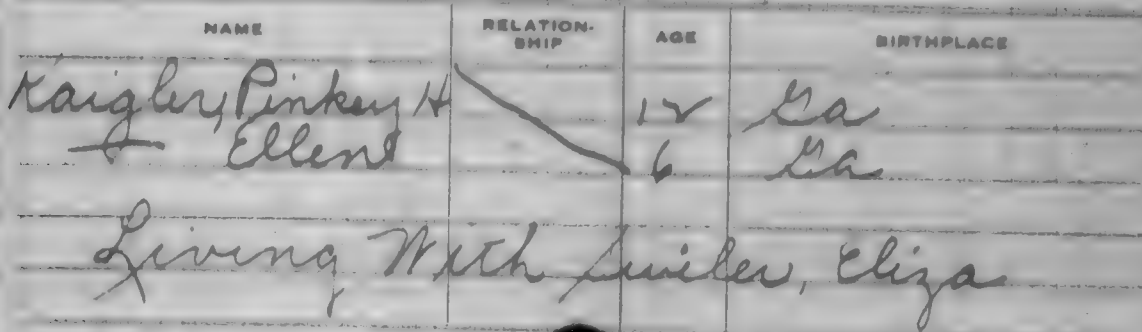 NAME RELATION-SHIP AGE BIRTHPLACE
Kaigler, Pinkey H 12 Ga
— Ellen 6 Ga
Living With Eliza